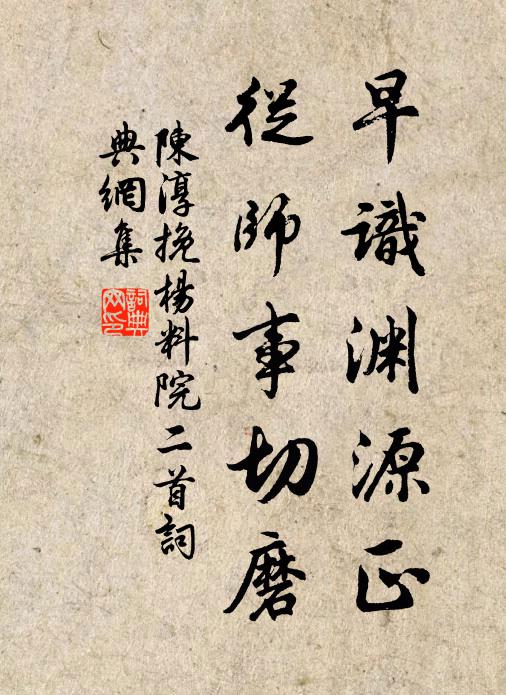 早識渊源正
從師事切磨
陳淳挽楊料院二首詞
典網集
詞典
网印